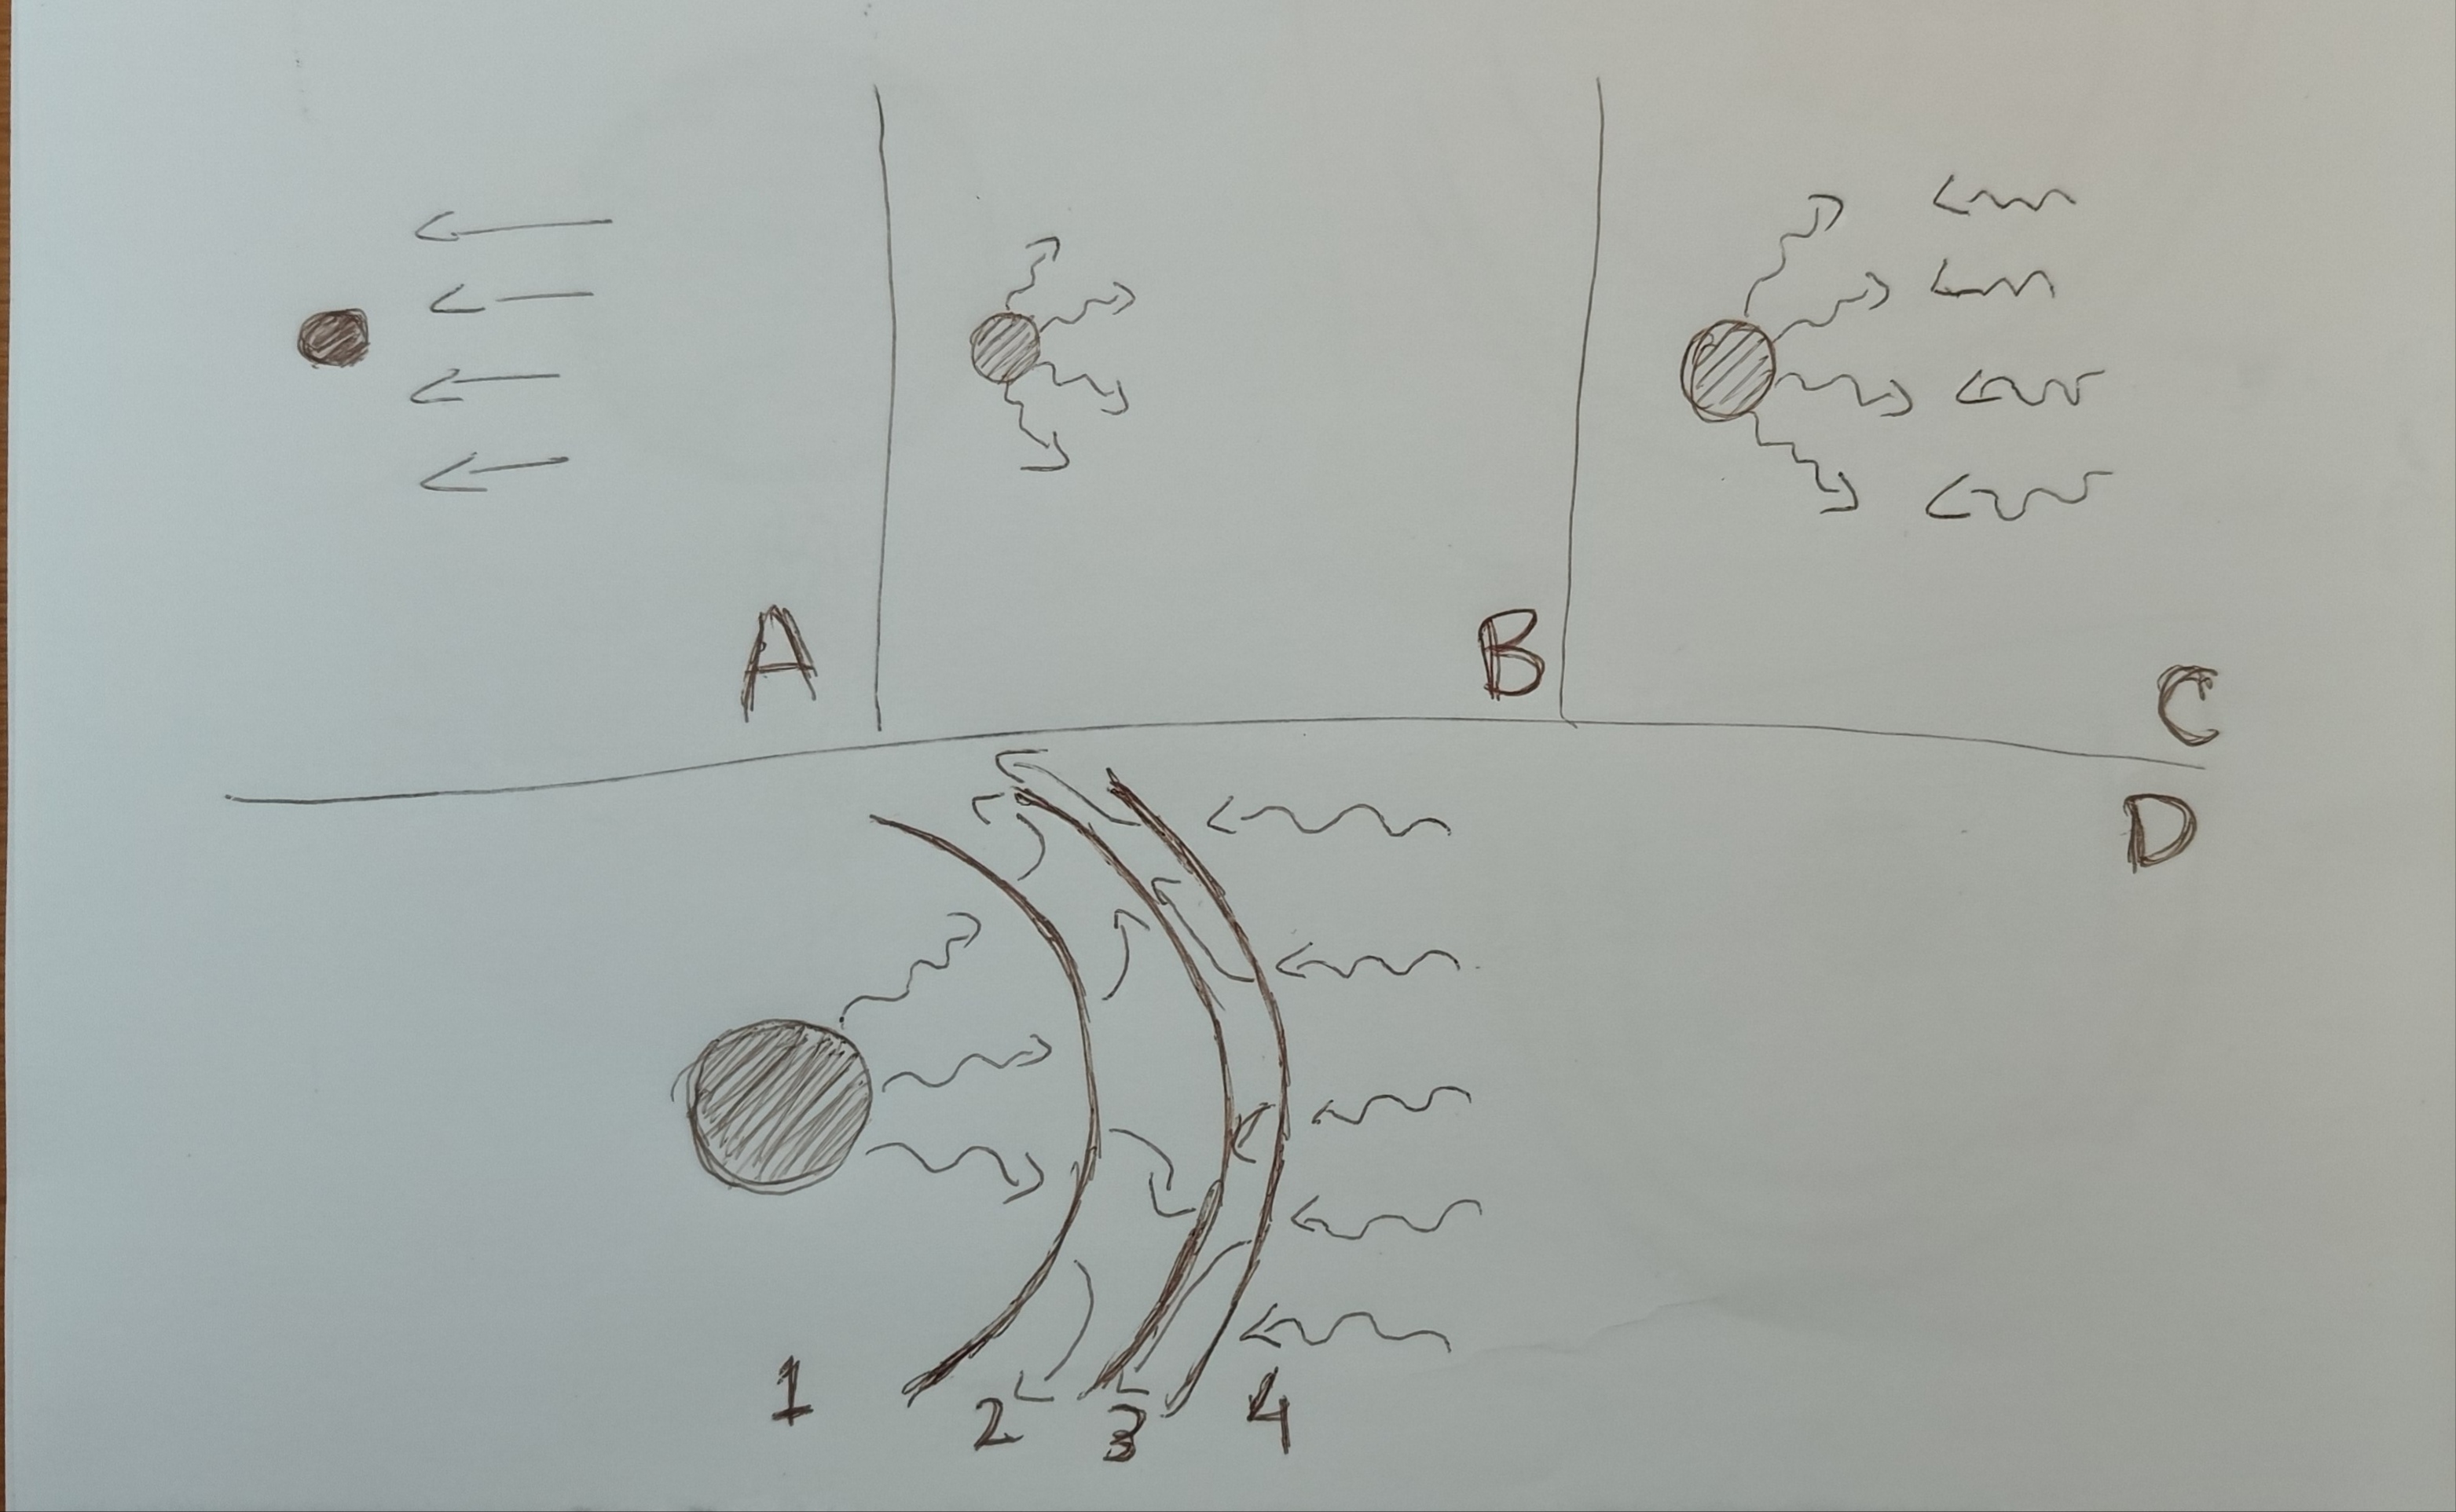 A
B
C
D
1
2
3
4